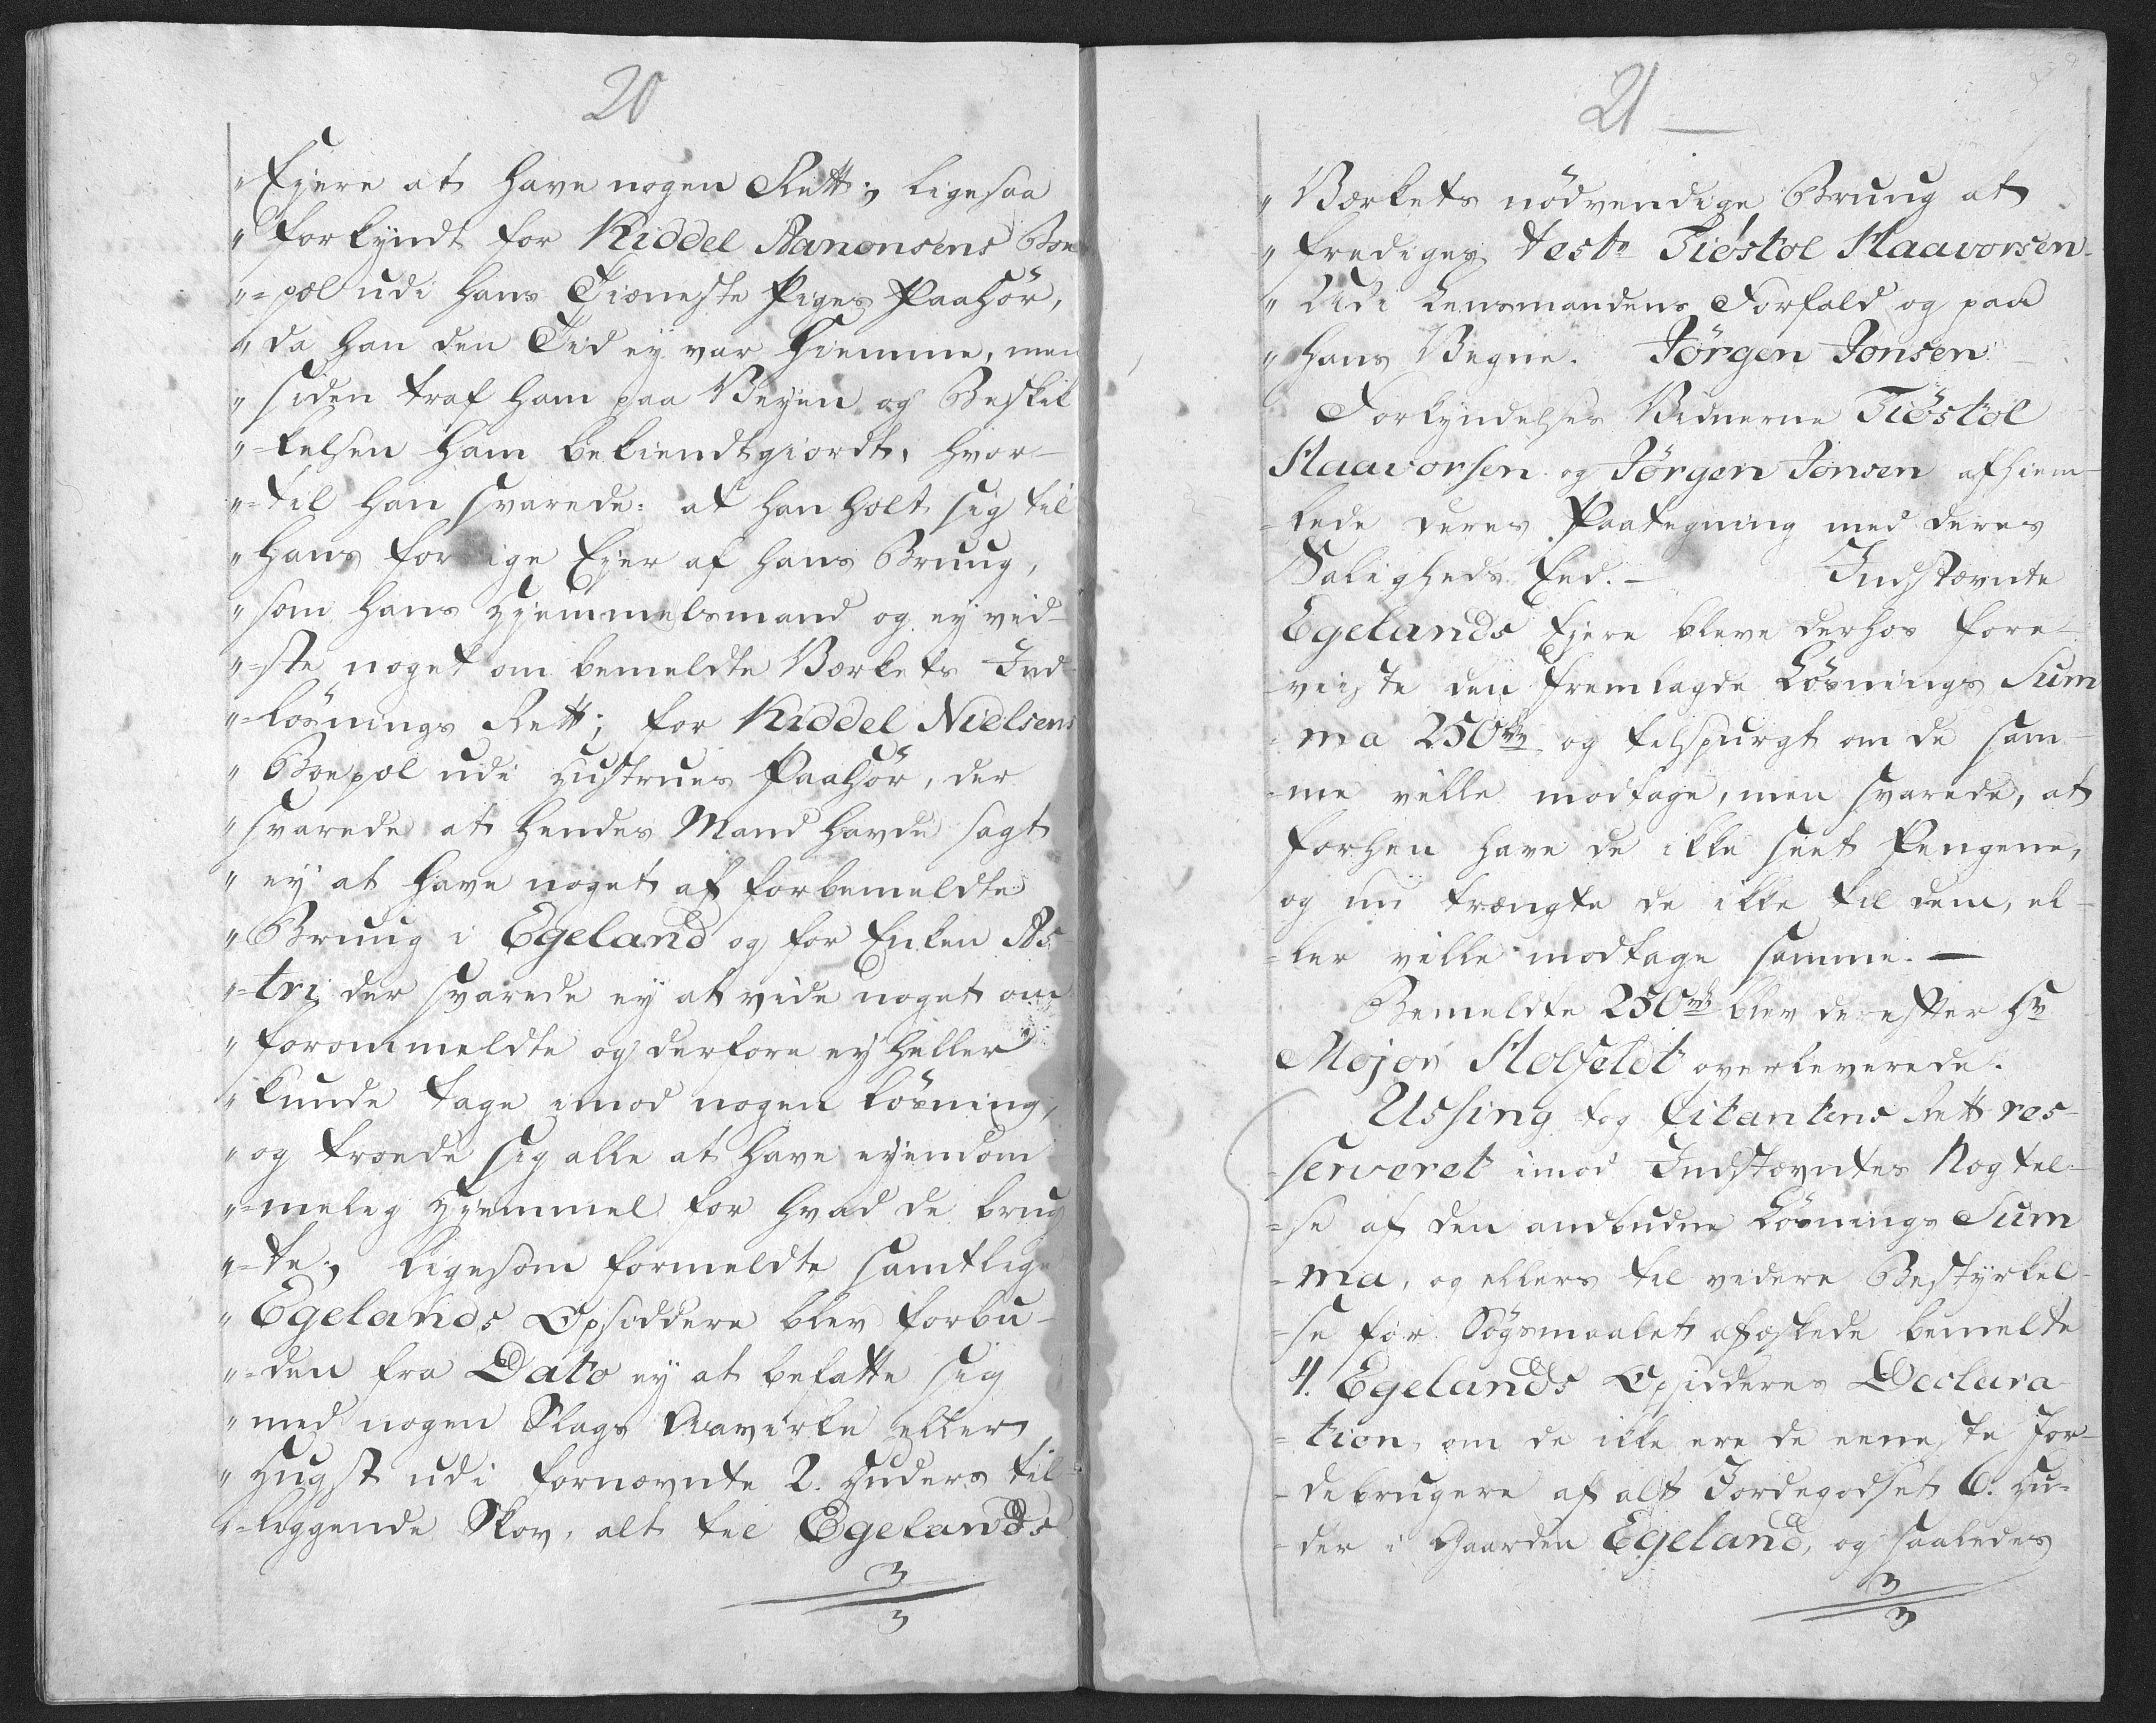 20
" Ejere at have nogen Rett; ligesaa
" forkyndt for Kiddel Aanonsens Boe
"=pæl udi hans Tieneste Piges Paahør,
" da han den Tid ey var hiemme, men
" siden traf ham paa Veyen og Beskik
"=kelsen ham bekiendtgiordt, hvor-
"=til han svarede: at han holt sig til
" hans forrige Ejer af hans Bruug,
" som hans Hjemmelsmand og ey vid-
"=ste noget om bemeldte Værkets Ind-
"=løsnings Rett; for Kiddel Nielsens
" Boepæl udi Hustrues Paahør, der
" svarede at hendes Mand havde sagt
" ey at have noget af forbemeldte
" Bruug i Egeland og for Enken As-
"=tri, der svarede ey at vide noget om
" forommeldte og derfore ey heller
" kunde tage imod nogen Løsning,
" og troede sig alle at have eyendom
"=melig Hjemmel for hvad de brug
"=te; Ligesom formeldte samtlige
" Egelands Opsiddere blev forbu-
"=den fra Dato ey at befatte sig
" med nogen Slags Qvavirke eller
" Hugst udi fornævnte 2. Huders til-
"=liggende Skov, alt til Egelands
21
" Værkets nødvendige Bruug at
" frediges teste Tiøstol Haavorsen
" Udi Lensmandens Forfald og paa
" hans Vegne. Jørgen Jonsen
Forkyndelses Vidnerne Tiøstol
Haavorsen og Jørgen Jonsen afhiem-
=lede deres Paategning med deres
Saligheds Eed. - Indstævnte
Egelands Ejere bleve derhos fore-
viiste den fremlagde Løsnings Sum
ma 250 rdr og tilspurgt om de sam-
me ville modtage, men svarede, at
forhen have de ikke seet Pengene,
og nu trængte de ikke til dem, el-
=ler ville modtage samme. —
Bemeldte 250 rdr blev derefter Hr
Major Holfeldt overleverede.
Ussing tog Citantens Rett res-
=serveret imod Indstævntes Nægtel-
=se af den andbudne Løsnings Sum
=ma, og ellers til videre Bestyrkel-
=se for Søgsmaalet afæskede bemelte
4. Egelands Opsidderes Declara
=tion, om de ikke ere de eeneste Jor-
=debrugere af alt Jordegodset 6. Hu=
=der i Gaarden Egeland, og saaledes